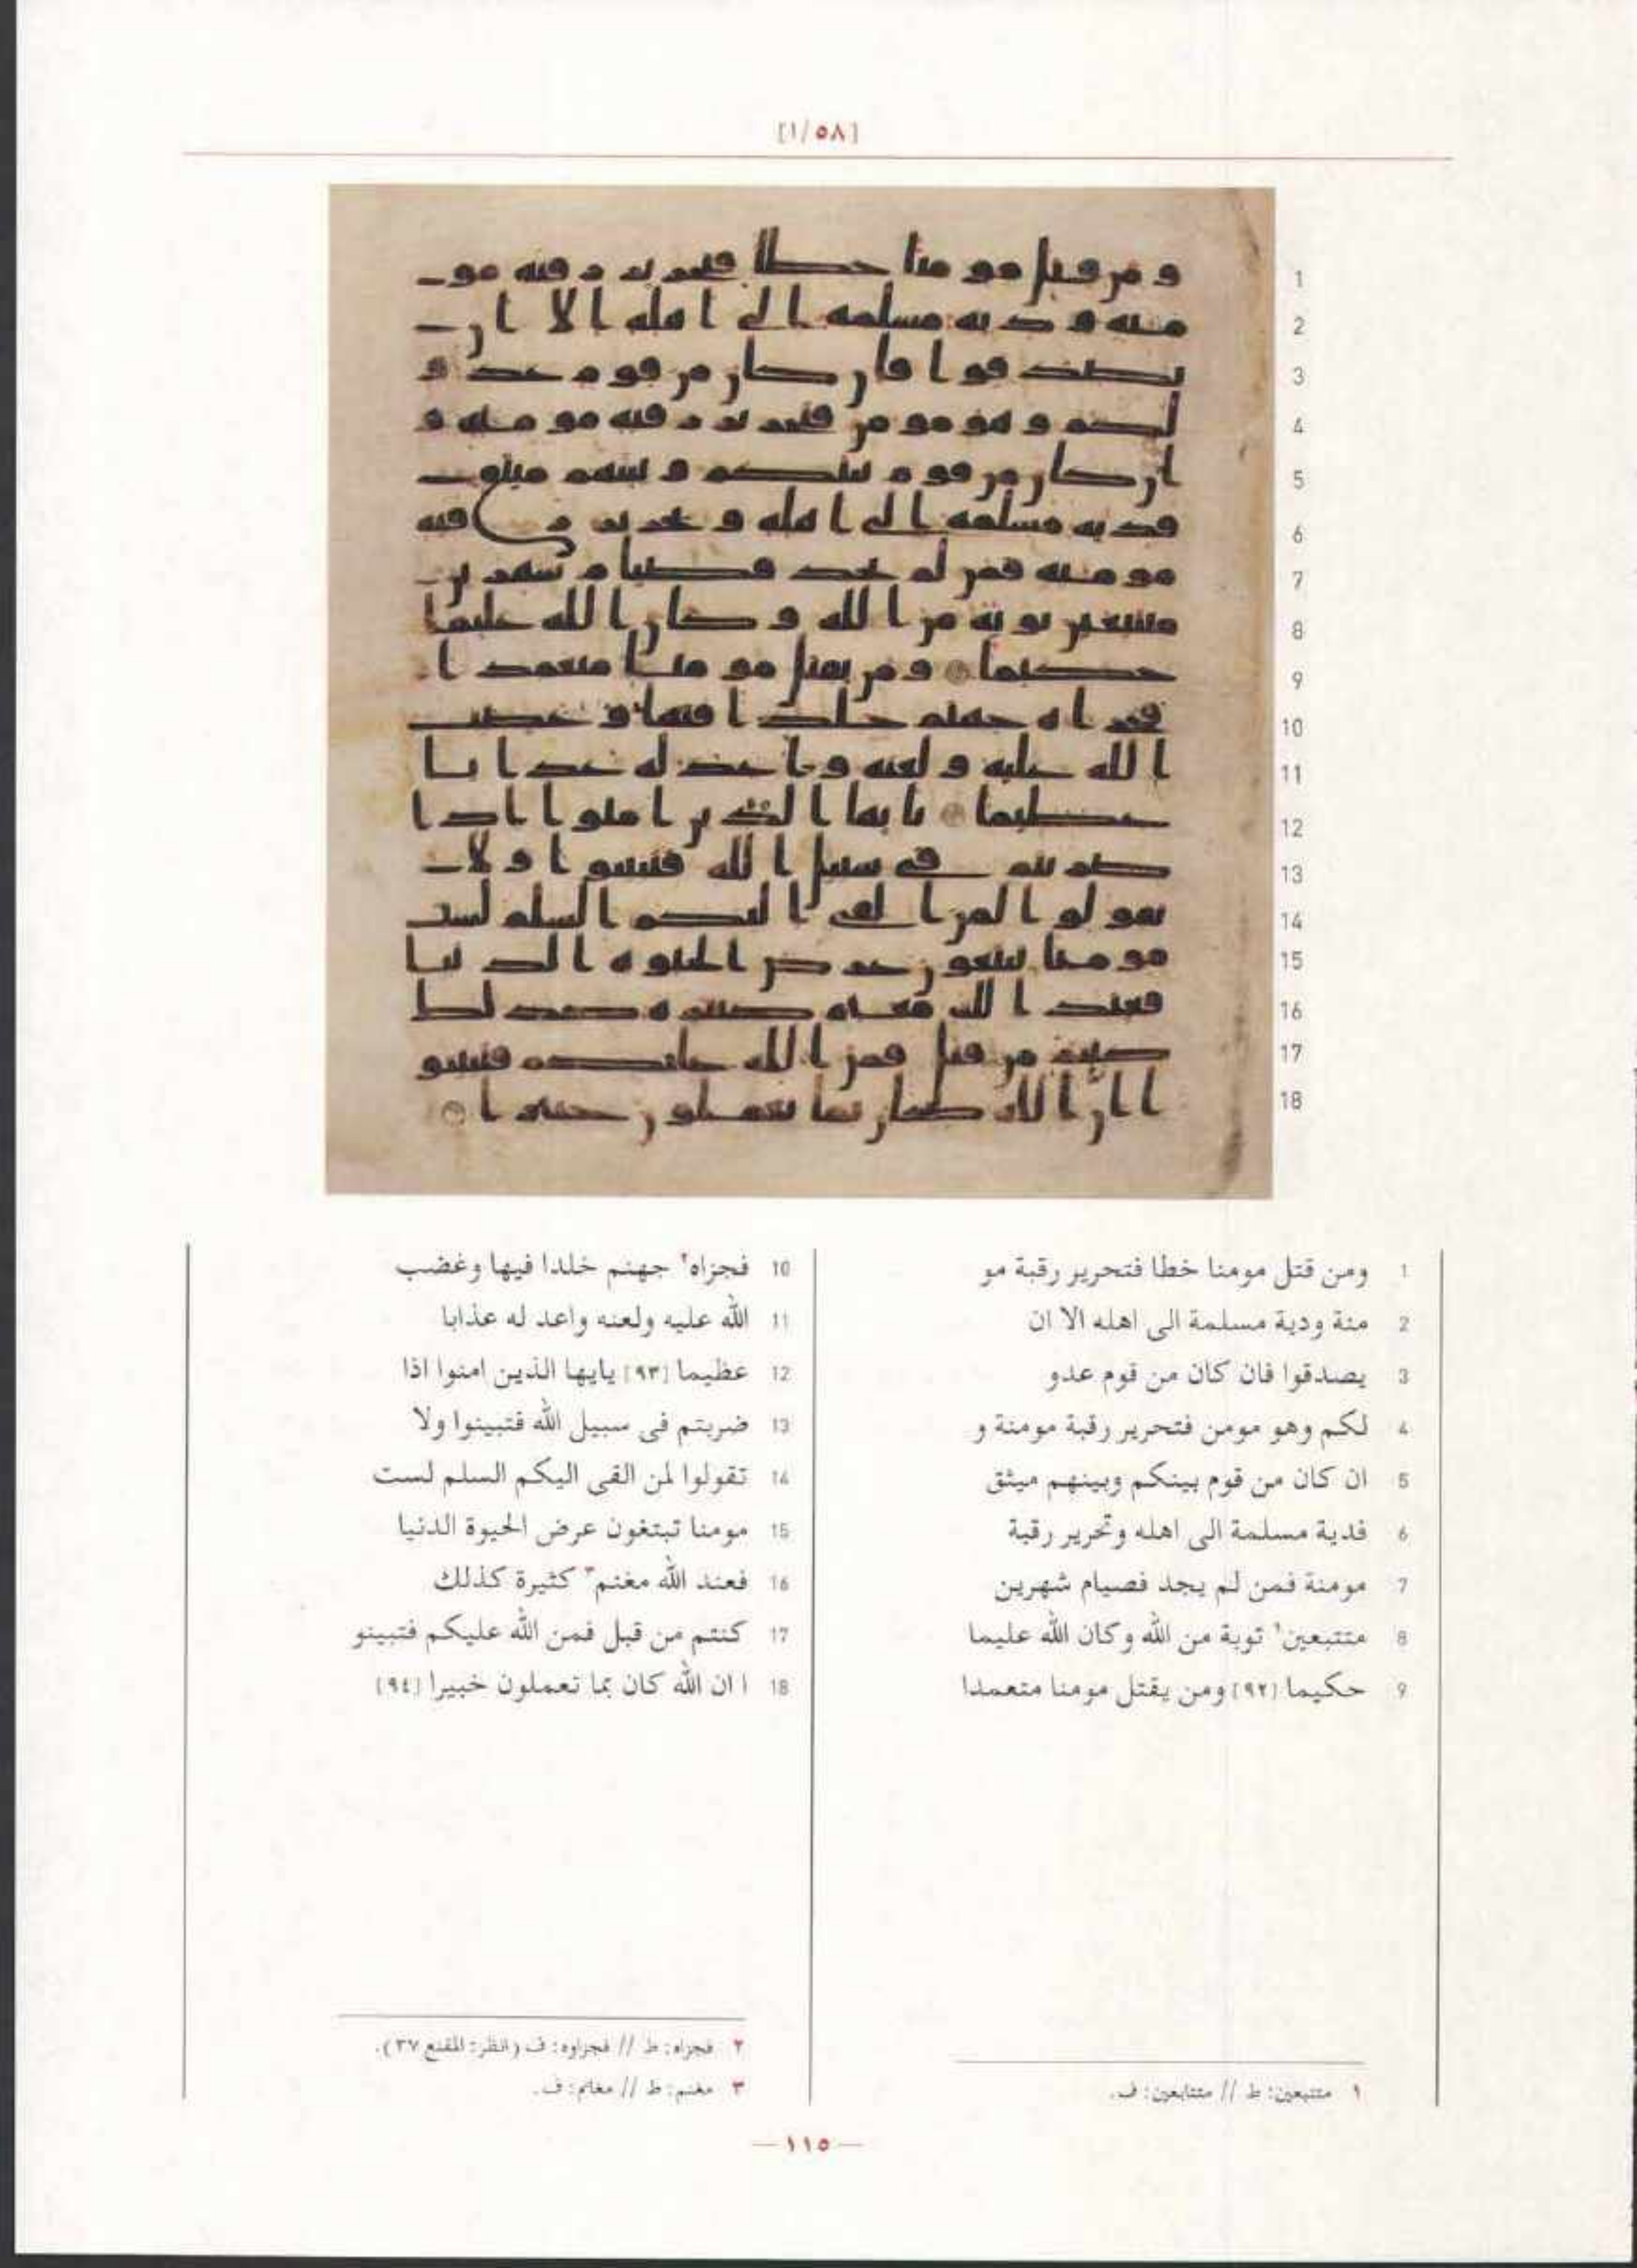 [١/٥٨]
1 ومن قتل مومنا خطا فتحرير رقبة مو
2 منة ودية مسلمة الى اهله الا ان
3 يصدقوا فان كان من قوم عدو
4 لكم وهو مومن فتحرير رقبة مومنة و
5 ان كان من قوم بينكم وبينهم ميثق
6 فدية مسلمة الى اهله وتحرير رقبة
7 مومنة فمن لم يجد فصيام شهرين
8 متتبعين١ توبة من الله وكان الله عليما
9 حكيما [٩٢] ومن يقتل مومنا متعمدا
10 فجزاه٢ جهنم خلدا فيها وغضب
11 الله عليه ولعنه واعد له عذابا
12 عظيما [٩٣] يايها الذين امنوا اذا
13 ضربتم فى سبيل الله فتبينوا ولا
14 تقولوا لمن القى اليكم السلم لست
15 مومنا تبتغون عرض الحيوة الدنيا
16 فعند الله مغنم٣ كثيرة كذلك
17 كنتم من قبل فمن الله عليكم فتبينو
18 ا ان الله كان بما تعملون خبيرا [٩٤]
١ متتبعين: ط // متتابعين: ف.
٢ فجزاه: ط // فجزاوه: ف (انظر: المقنع ٣٧).
٣ مغنم: ط // مغانم: ف.
—١١٥—